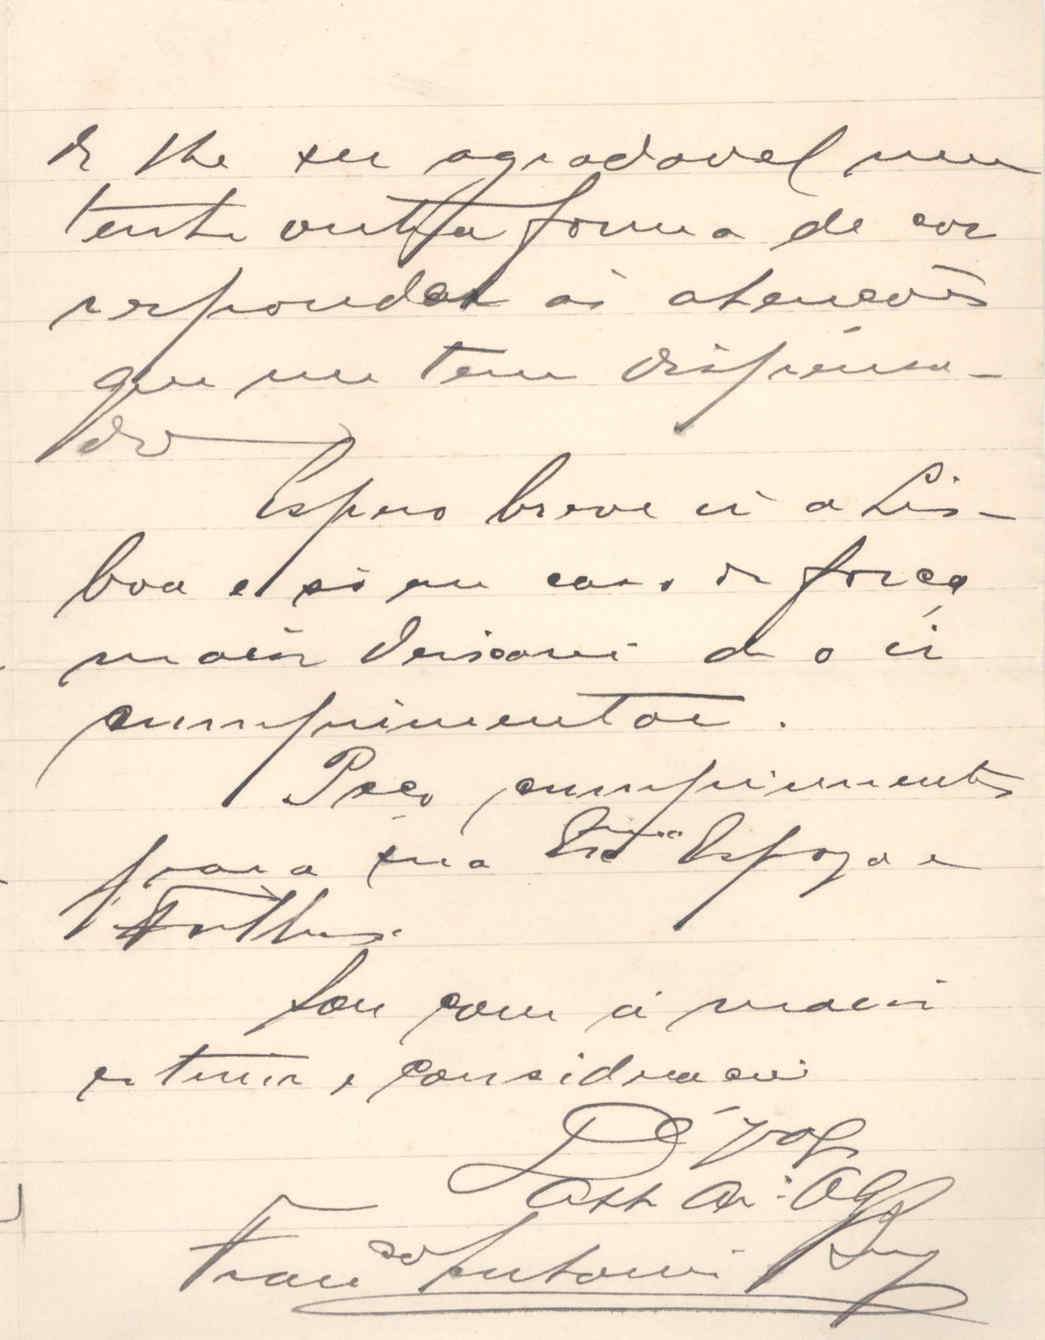 de lhe ser agradavel nem
tenho outra forma de cor
responder ás atenções
que me tem dispensa-
do
Espero breve ir a Lis-
boa e só em caso de força
maior deixarei de o ir
cumprimentar.
Peço cumprimentos
para sua Exma Espoza e
Filhos.
Sou com a maior
estima e consideração
De V.
Att
Franco Antonio